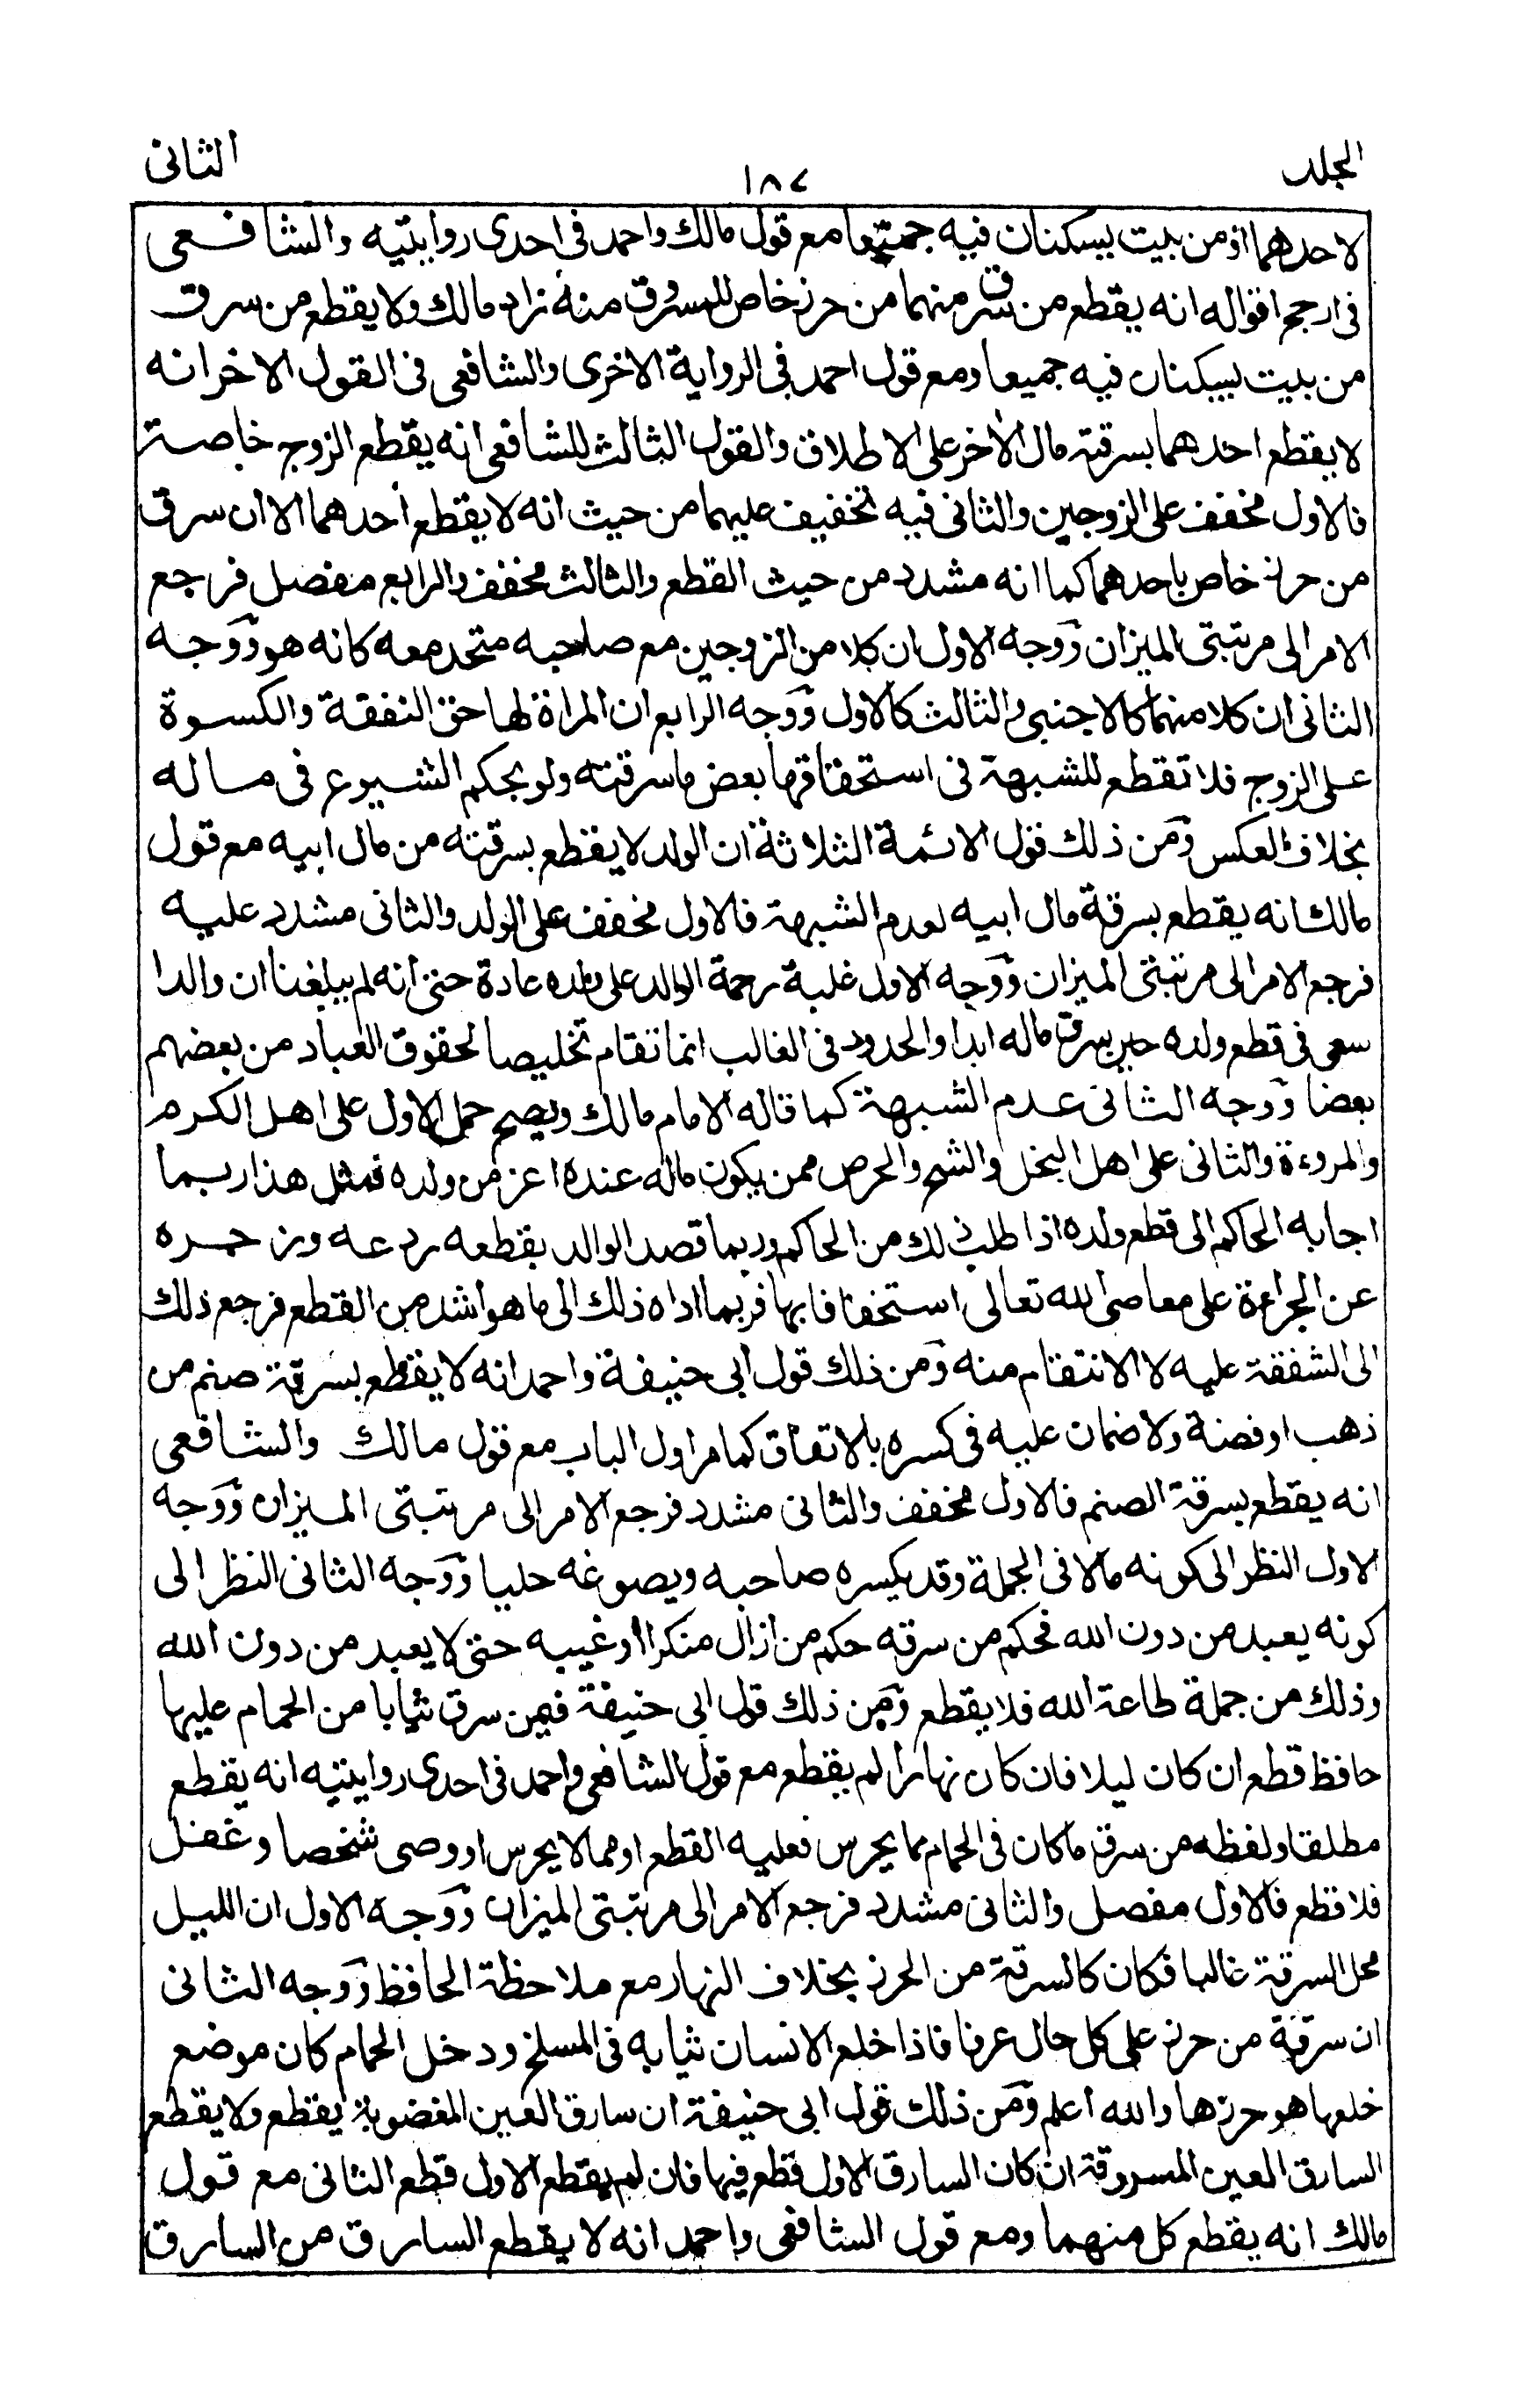 المجلد
١٨٧
الثانى
لاحدهما اومن بيت يسكنان فيه جميعا مع قول مالك واحمد فى احدى روايتيه والشافعى
فى ارجح اقواله انه يقطع من سرق منهما من حرز خاص للمسروق منه زاد مالك ولا يقطع من سرق
من بيت يسكنان فيه جميعا ومع قول احمد فى الرواية الاخرى والشافعى فى القول الاخر انه
لا يقطع احدهما بسرقة مال الاخر على الاطلاق والقول الثالث للشافعى انه يقطع الزوج خاصة
فالاول مخفف على الزوجين والثانى فيه تخفيف عليهما من حيث انه لا يقطع احدهما الا ان سرق
من حرز خاص باحدهما كما انه مشدد من حيث القطع والثالث مخفف والرابع مفصل فرجع
الامر الى مرتبتى الميزان ووجه الاول ان كلا من الزوجين مع صاحبه متحد معه كانه هو ووجه
الثانى ان كلا منهما كالاجنبى والثالث كالاول ووجه الرابع ان المراة لها حق النفقة والكسوة
على الزوج فلا تقطع للشبهة فى استحقاقها بعض ما سرقته ولو بحكم الشيوع فى ماله
بخلاف العكس ومن ذلك قول الائمة الثلاثة ان الولد لا يقطع بسرقته من مال ابيه مع قول
مالك انه يقطع بسرقة مال ابيه لعدم الشبهة فالاول مخفف على الولد والثانى مشدد عليه
فرجع الامر الى مرتبتى الميزان ووجه الاول غلبة رحمة الوالد على ولده عادة حتى انه لم يبلغنا ان والدا
سعى فى قطع ولده حين سرق ماله ابدا والحدود فى الغالب انما تقام تخليصا لحقوق العباد من بعضهم
بعضا ووجه الثانى عدم الشبهة كما قاله الامام مالك ويصح حمل الاول على اهل الكرم
والمروءة والثانى على اهل البخل والشح والحرص ممن يكون ماله عنده اعز من ولده فمثل هذا ربما
اجابه الحاكم الى قطع ولده اذا طلب ذلك من الحاكم وربما قصد الوالد بقطعه ردعه وزجره
عن الجراءة على معاصى الله تعالى استخفافا بها فربما اداه ذلك الى ما هو اشد من القطع فرجع ذلك
الى الشفقة عليه لا الانتقام منه ومن ذلك قول ابى حنيفة واحمد انه لا يقطع بسرقة صنم من
ذهب او فضة ولا ضمان عليه فى كسره بالاتفاق كما مر اول الباب مع قول مالك والشافعى
انه يقطع بسرقة الصنم فالاول مخفف والثانى مشدد فرجع الامر الى مرتبتى الميزان ووجه
الاول النظر الى كونه مالا فى الجملة وقد يكسره صاحبه ويصوغه حليا ووجه الثانى النظر الى
كونه يعبد من دون الله فحكم من سرقه حكم من ازال منكرا او غيبه حتى لا يعبد من دون الله
وذلك من جملة طاعة الله فلا يقطع ومن ذلك قول ابى حنيفة فيمن سرق ثيابا من الحمام عليها
حافظ قطع ان كان ليلا فان كان نهارا لم يقطع مع قول الشافعى واحمد فى احدى روايتيه انه يقطع
مطلقا ولفظه من سرق ما كان فى الحمام مما يحرس فعليه القطع او مما لا يحرس او وصى شخصا وغفل
فلا قطع فالاول مفصل والثانى مشدد فرجع الامر الى مرتبتى الميزان ووجه الاول ان الليل
محل السرقة غالبا فكان كالسرقة من الحرز بخلاف النهار مع ملاحظة الحافظ ووجه الثانى
ان سرقة من حرز على كل حال عرفا فاذا خلع الانسان ثيابه فى المسلخ ودخل الحمام كان موضع
خلعها هو حرزها والله اعلم ومن ذلك قول ابى حنيفة ان سارق العين المغضوبة يقطع ولا يقطع
السارق العين المسروقة ان كان السارق الاول قطع فيها فان لم يقطع الاول قطع الثانى مع قول
مالك انه يقطع كل منهما ومع قول الشافعى واحمد انه لا يقطع السارق من السارق